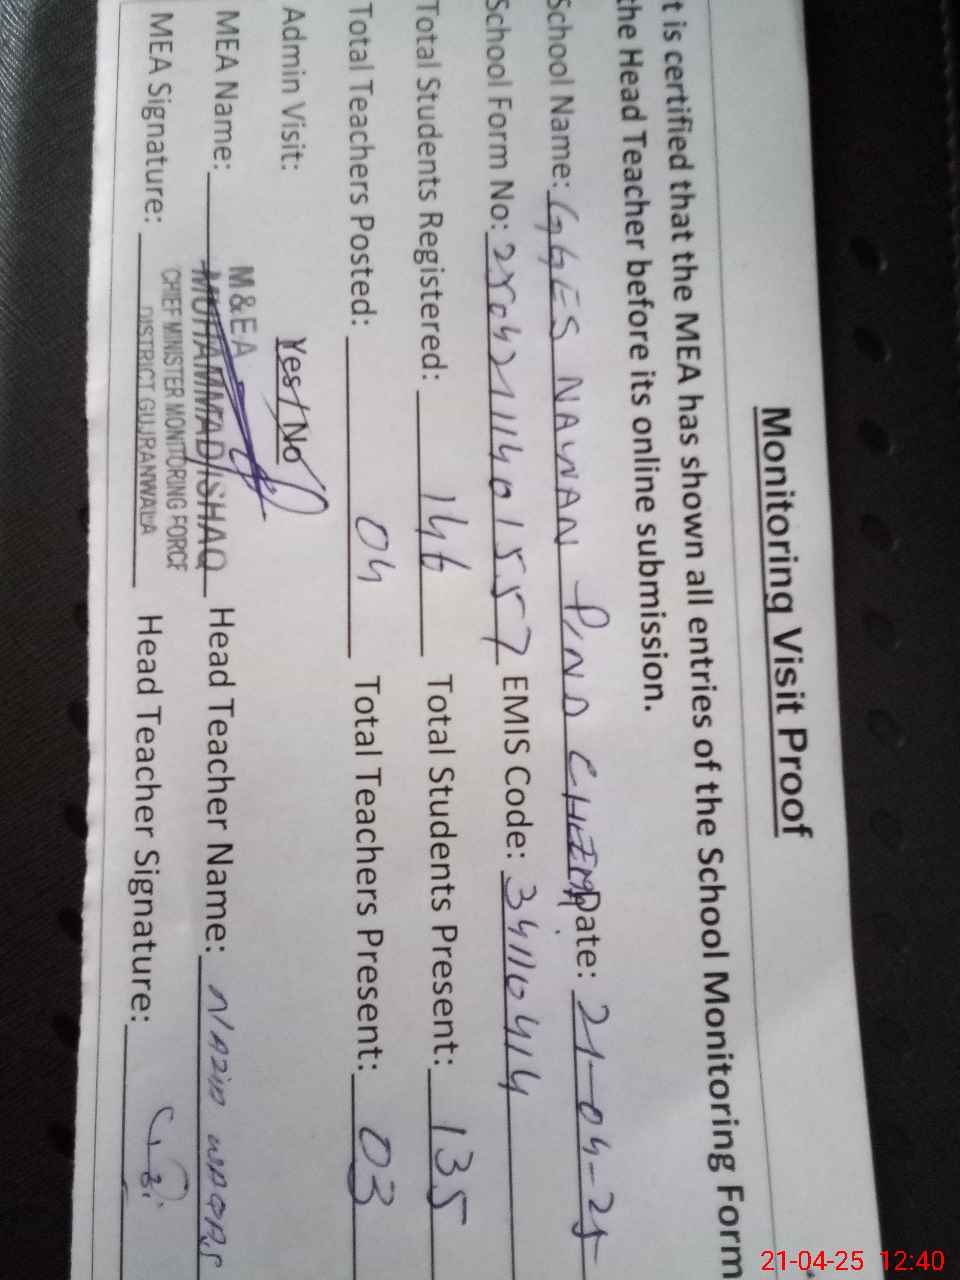 Monitoring Visit Proof
t is certified that the MEA has shown all entries of the School Monitoring Form
the Head Teacher before its online submission.
School Name: GGES NAWAN PIND CHEEMA Date: 21-04-25
School Form No: EMIS Code: 34110414
Total Students Registered: 146 Total Students Present: 135
Total Teachers Posted: 04 Total Teachers Present: 03
Admin Visit: Yes/No
M & E A
MEA Name: MUHAMMAD ISHAQ Head Teacher Name:
CHIEF MINISTER MONITORING FORCE
MEA Signature: DISTRICT GUJRANWALA Head Teacher Signature:
21-04-25 12:40